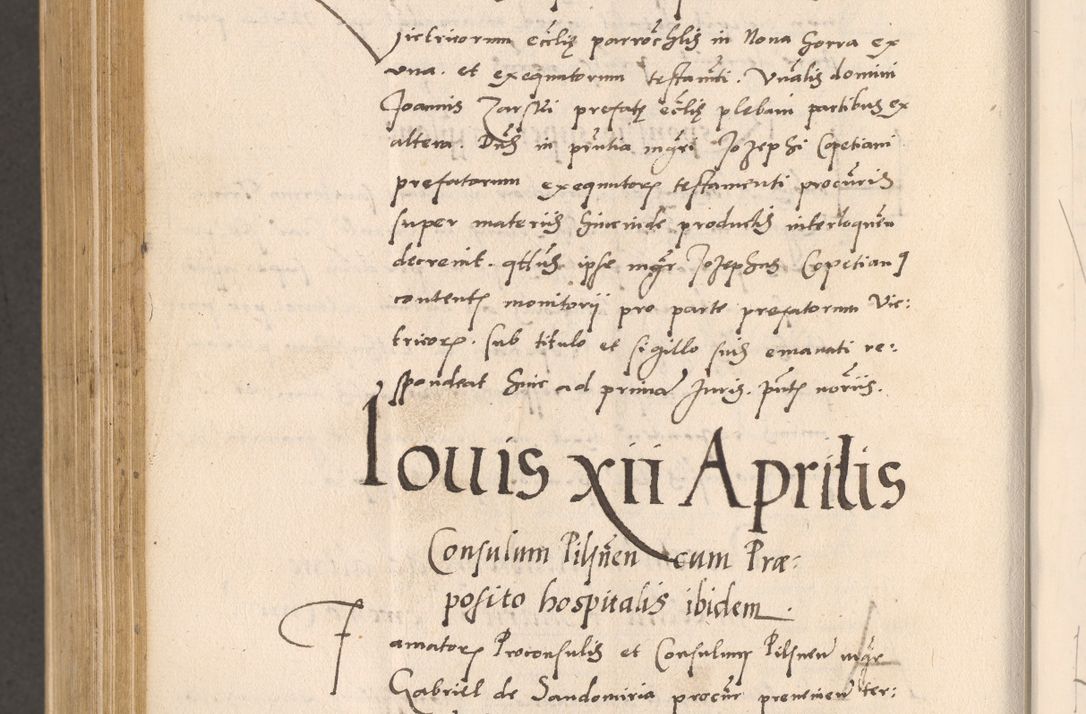 victricorum ecclie parrochlis in Nova Gorra ex
una. et exequutorum testamti. Vnalis domini
Joannis Zarski prefate ecclie plebani partibus ex
altera. Dns in pntia mgri Josephi Copetiani
prefatorum exequutorum testamenti procuris
super materiis hincinde productis interloquen
decrevit. qtus ipse mgr Josephus Copetian9
contentis monitorij pro parte prefatorum Vic:
tricorum. sub titulo et sigillo suis emanati re:
spondeat hinc ad prima Juris. pntis noriis.
Iouis xii Aprilis
Consulum Pilsnen cum Præ:
posito hospitalis ibidem.
Famatorum Proconsulis et Consulum Pilsnen mgr
Gabriel de Sandomiria procur preveniens ter: